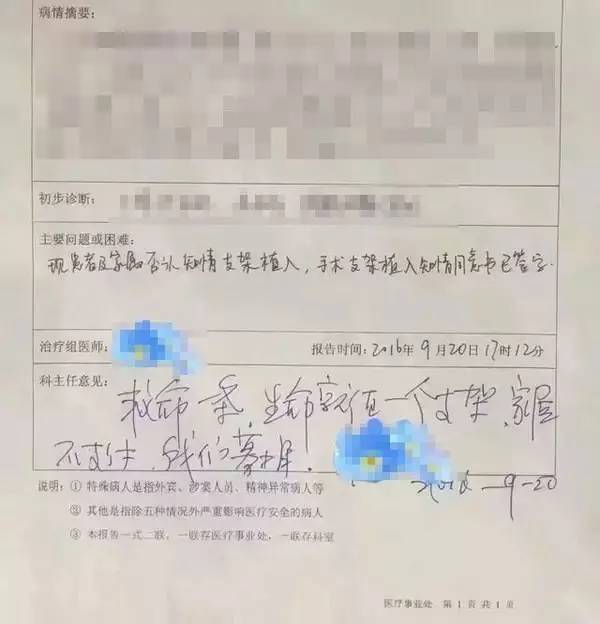 病情摘要:
初步诊断:
主要问题或困难:
现患者及家属否认知情支架植入，手术支架植入知情同意书已签字.
治疗组医师: 报告时间: 2016年9月20日17时12分
科主任意见:
救命一条，生命就值一个支架，家属
不支付，我们募捐.
2016-9-20
说明: ① 特殊病人是指外宾、涉案人员、精神异常病人等
② 其他是指除五种情况外严重影响医疗安全的病人
③ 本报告一式二联，一联存医疗事业处，一联存科室
医疗事业处 第 1 页 共 1 页